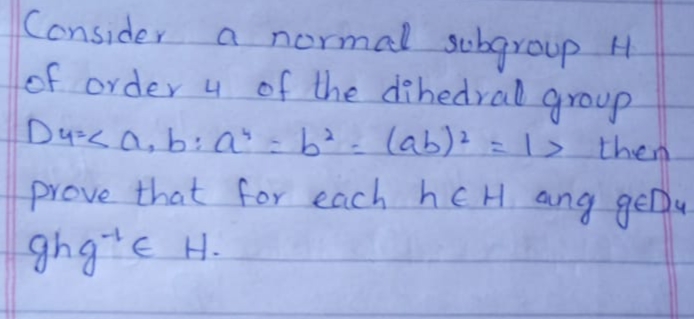 Consider a normal subgroup H
of order 4 of the dihedral group
D₄=< a, b : a⁴ = b² = (ab)² = 1> then
prove that for each h ∈ H ang g∈D₄
ghg⁻¹ ∈ H.